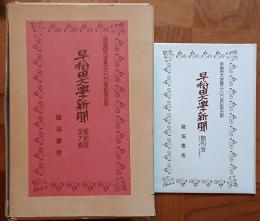 早稲田大學創立一〇〇周年記念出版
早稲田大學新聞
戦前版
全7巻
龍溪書舎
早稲田大學創立一〇〇周年記念出版
早稲田大學新聞
龍溪書舎